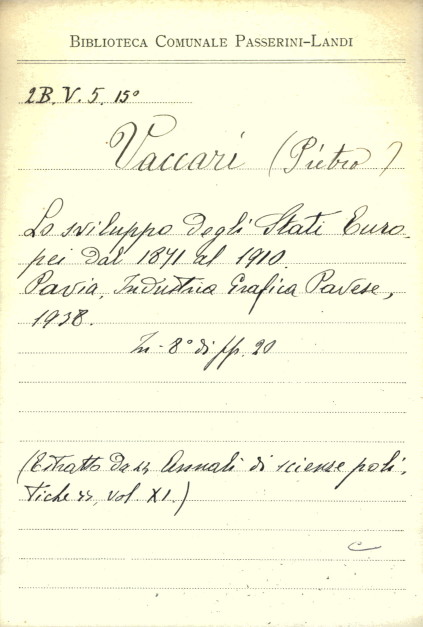 BIBLIOTECA COMUNALE PASSERINI-LANDI
2B. V. 5. 15°
Vaccari (Pietro)
Lo sviluppo degli Stati Euro-
pei dal 1871 al 1910.
Pavia, Industria Grafica Pavese,
1938.
In-8° di pp. 20
(Estratto da "Annali di scienze poli-
tiche", vol. XI.)
c